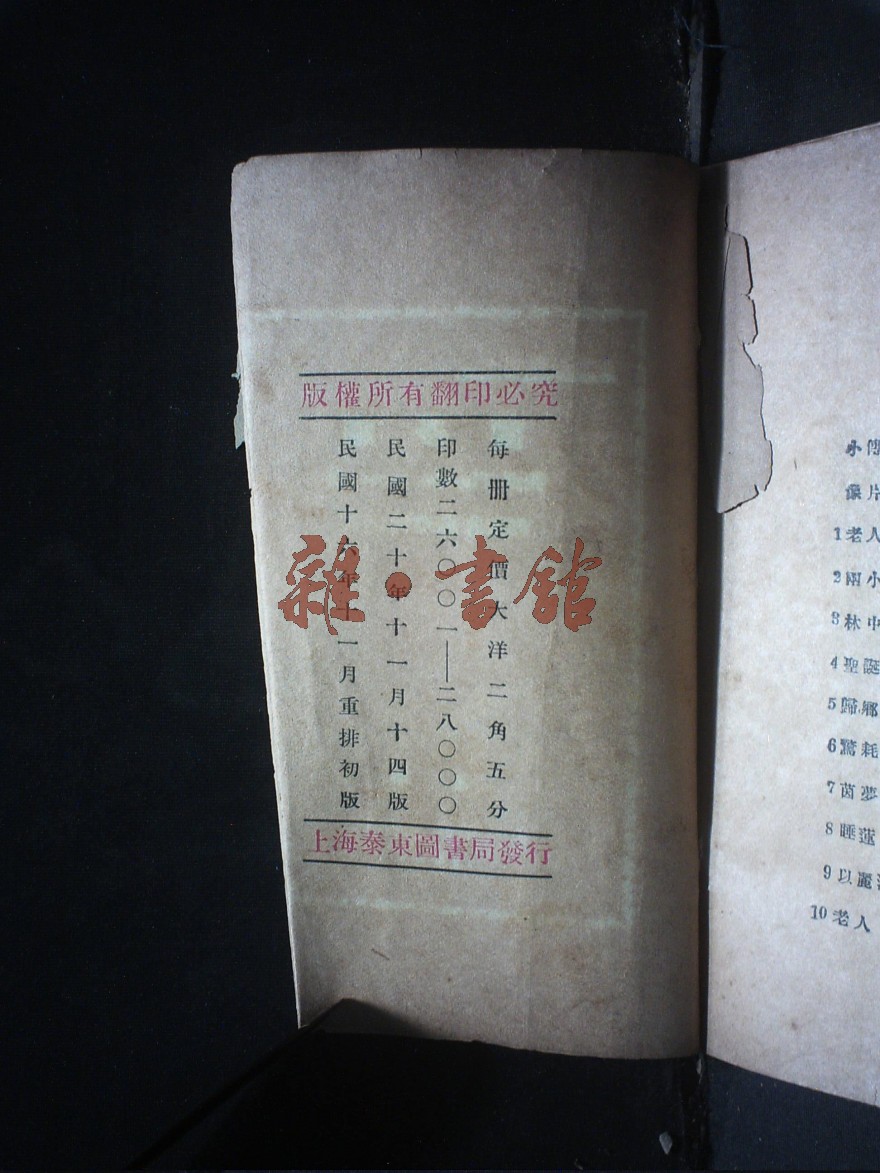 版權所有翻印必究
每册定價大洋二角五分
印數二六〇〇一——二八〇〇〇
民國二十年十一月十四版
民國十六年十一月重排初版
上海泰東圖書局發行
雜·書館
小傳
像片
1老人
2兩小
3林中
4聖誕
5歸鄉
6驚耗
7茵夢
8睡蓮
9以麗
10老人